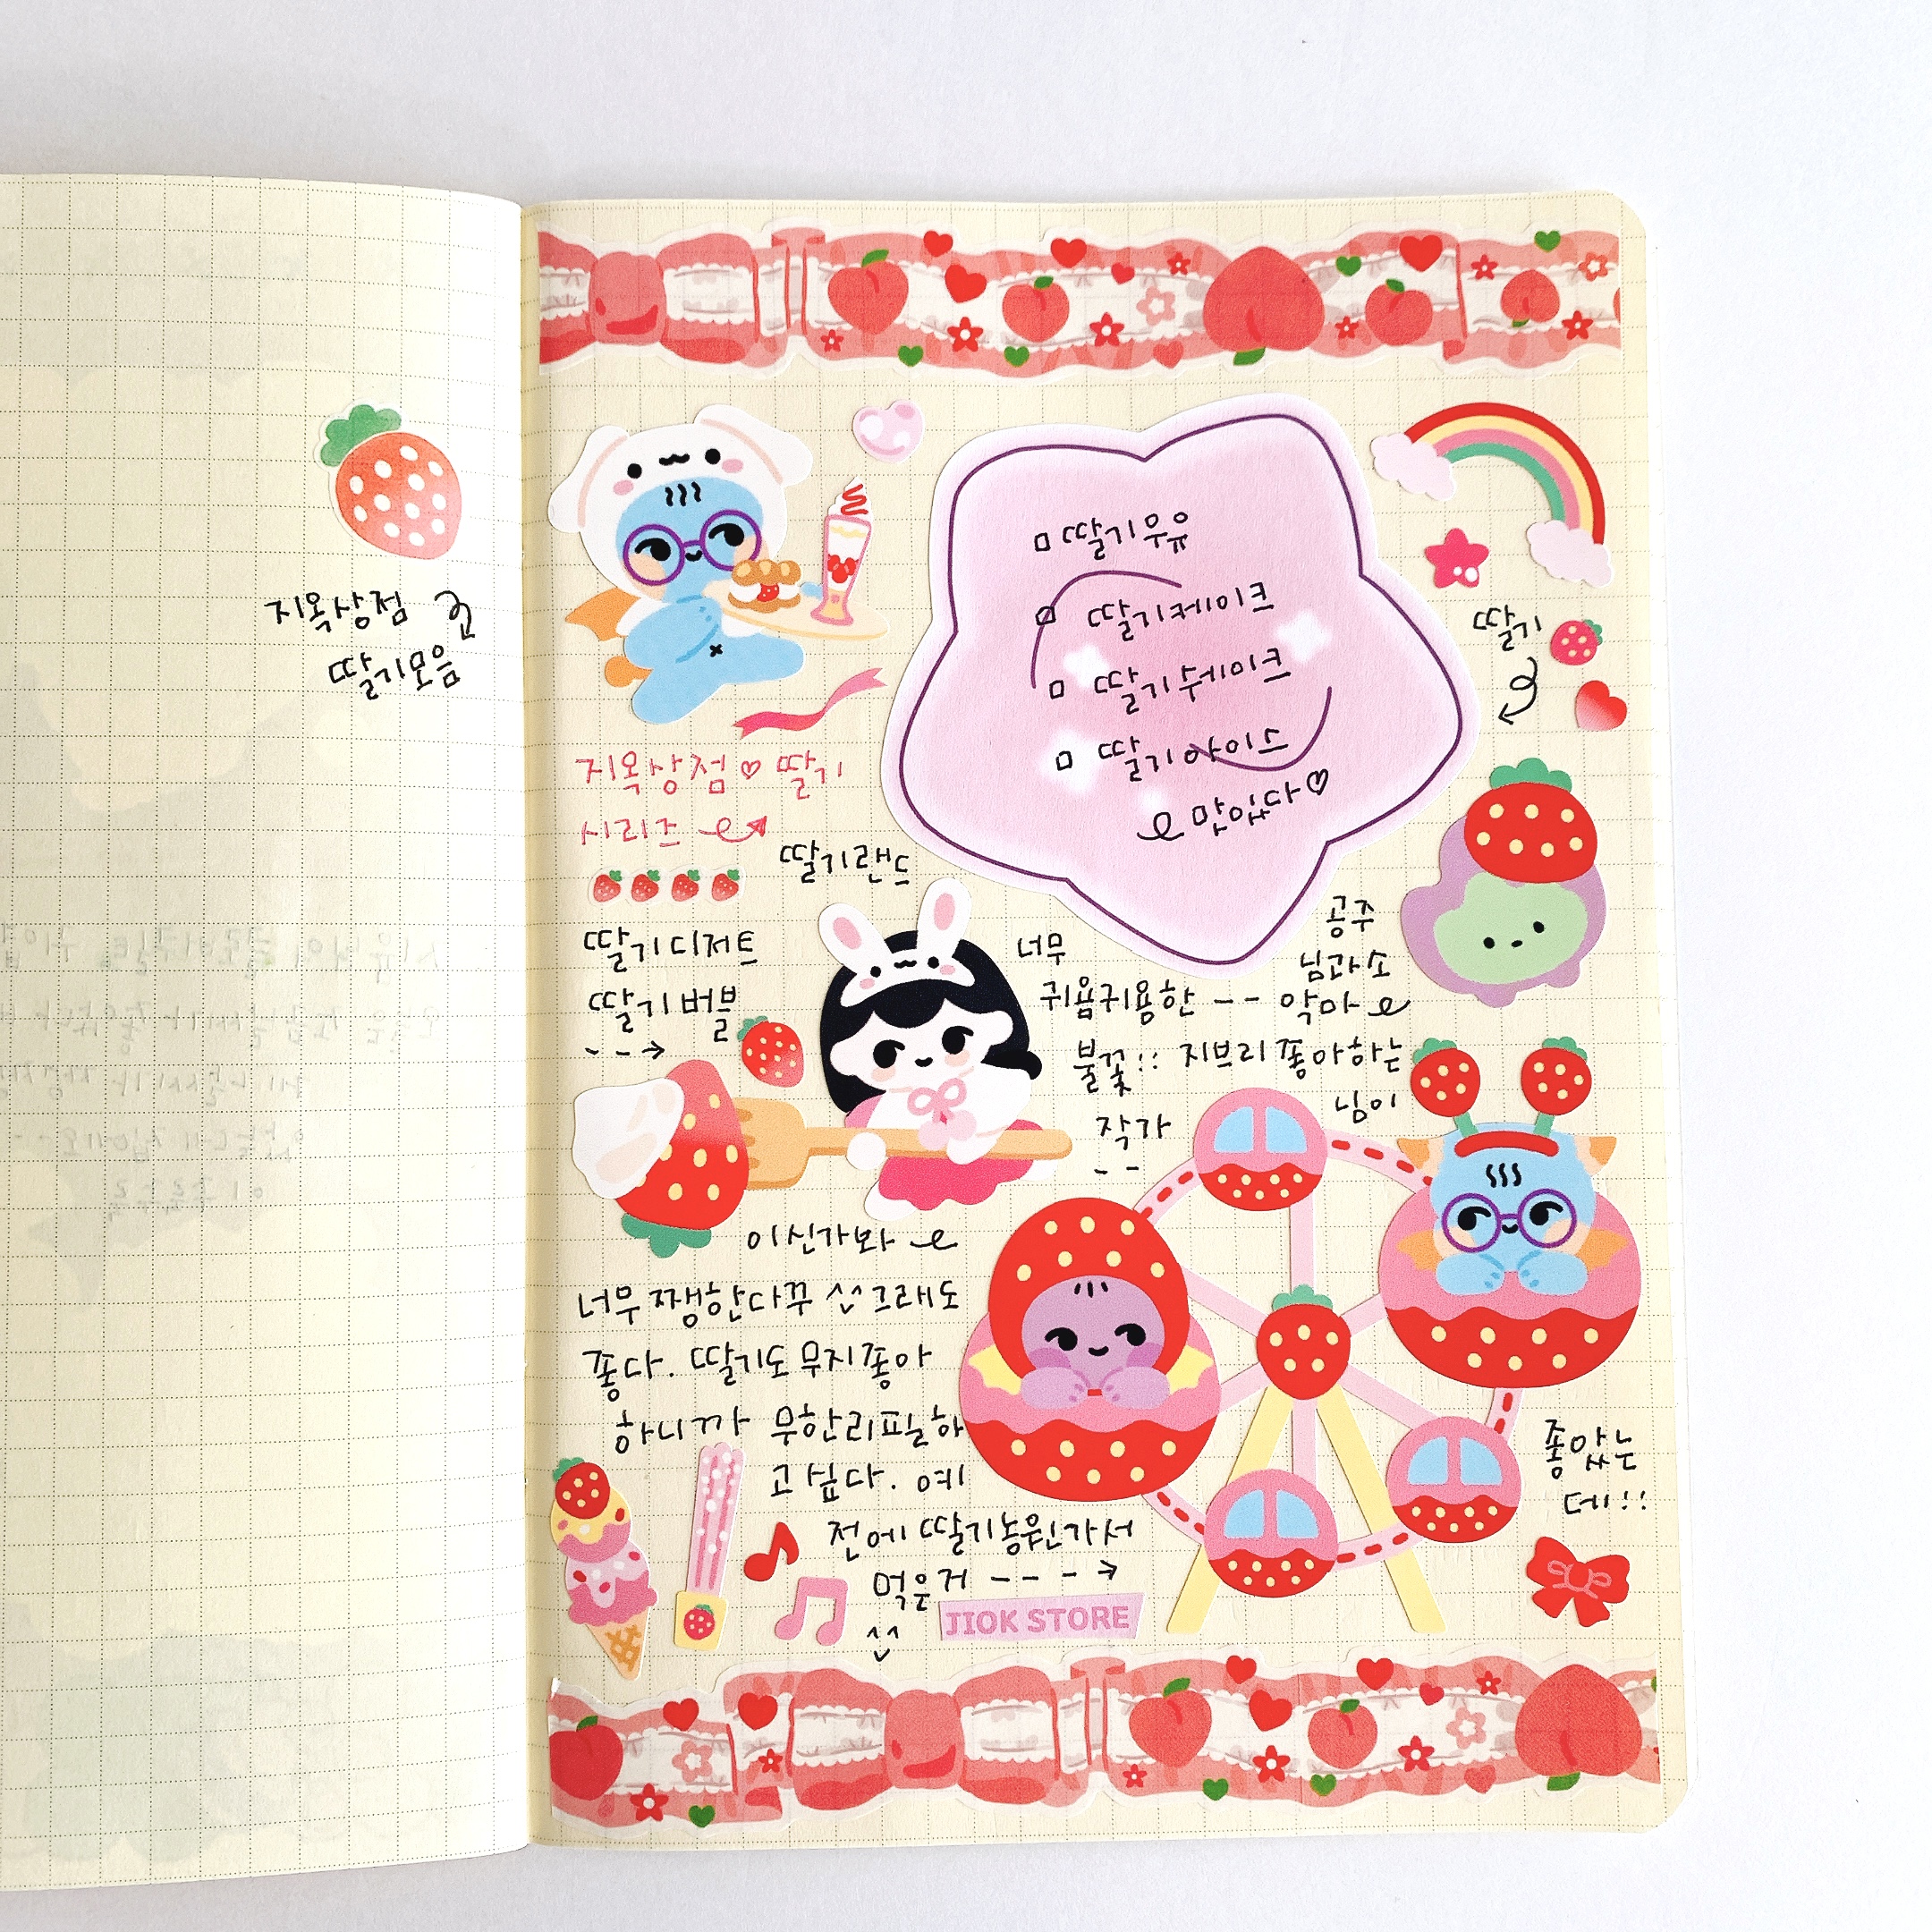 지옥상점
딸기모음
딸기우유
딸기케이크
딸기쉐이크
딸기아이스
맛있다♡
딸기
지옥상점♡딸기
시리즈
딸기랜드
딸기디저트
딸기버블
-->
너무
귀욤귀용한 --
불꽃!!
작가
--
공주
님과소
악마
지브리죻아하는
님이
이신가봐
너무쨍한다꾸 ^^ 그래도
죻다. 딸기도 무지죻아
하니까 무한리필하
고싶다. 예
전에 딸기농원가서
먹은거 --->
좋았는
데!!
JIOK STORE